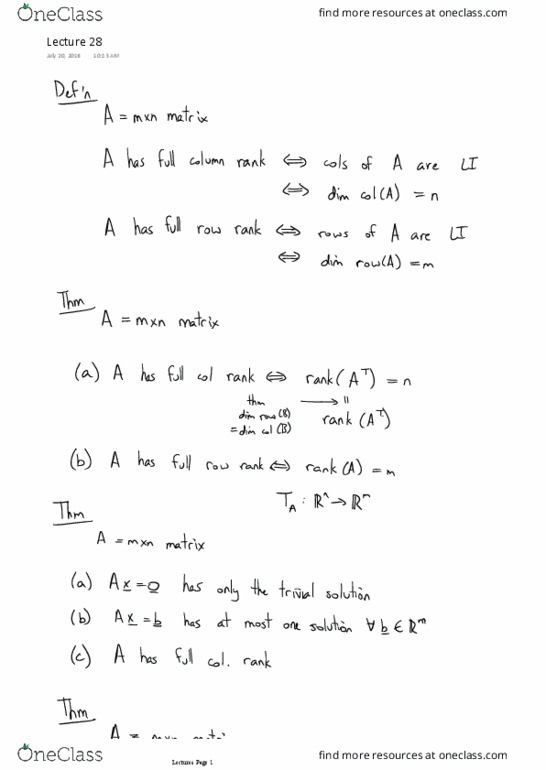 OneClass
find more resources at oneclass.com
Lecture 28
July 20, 2016
Def'n
A = mxn matrix
A has full column rank ⟺ cols of A are LI
⟺ dim col(A) = n
A has full row rank ⟺ rows of A are LI
⟺ dim row(A) = m
Thm
A = mxn matrix
(a) A has full col rank ⟺ rank(Aᵀ) = n
thm
dim row(B)
= dim col(B)
rank(Aᵀ)
(b) A has full row rank ⟺ rank(A) = m
T_A : ℝⁿ → ℝᵐ
Thm
A = mxn matrix
(a) Ax = 0 has only the trivial solution
(b) Ax = b has at most one solution ∀ b ∈ ℝᵐ
(c) A has full col. rank
Thm
A = mxn matri
OneClass
Lectures Page 1
find more resources at oneclass.com